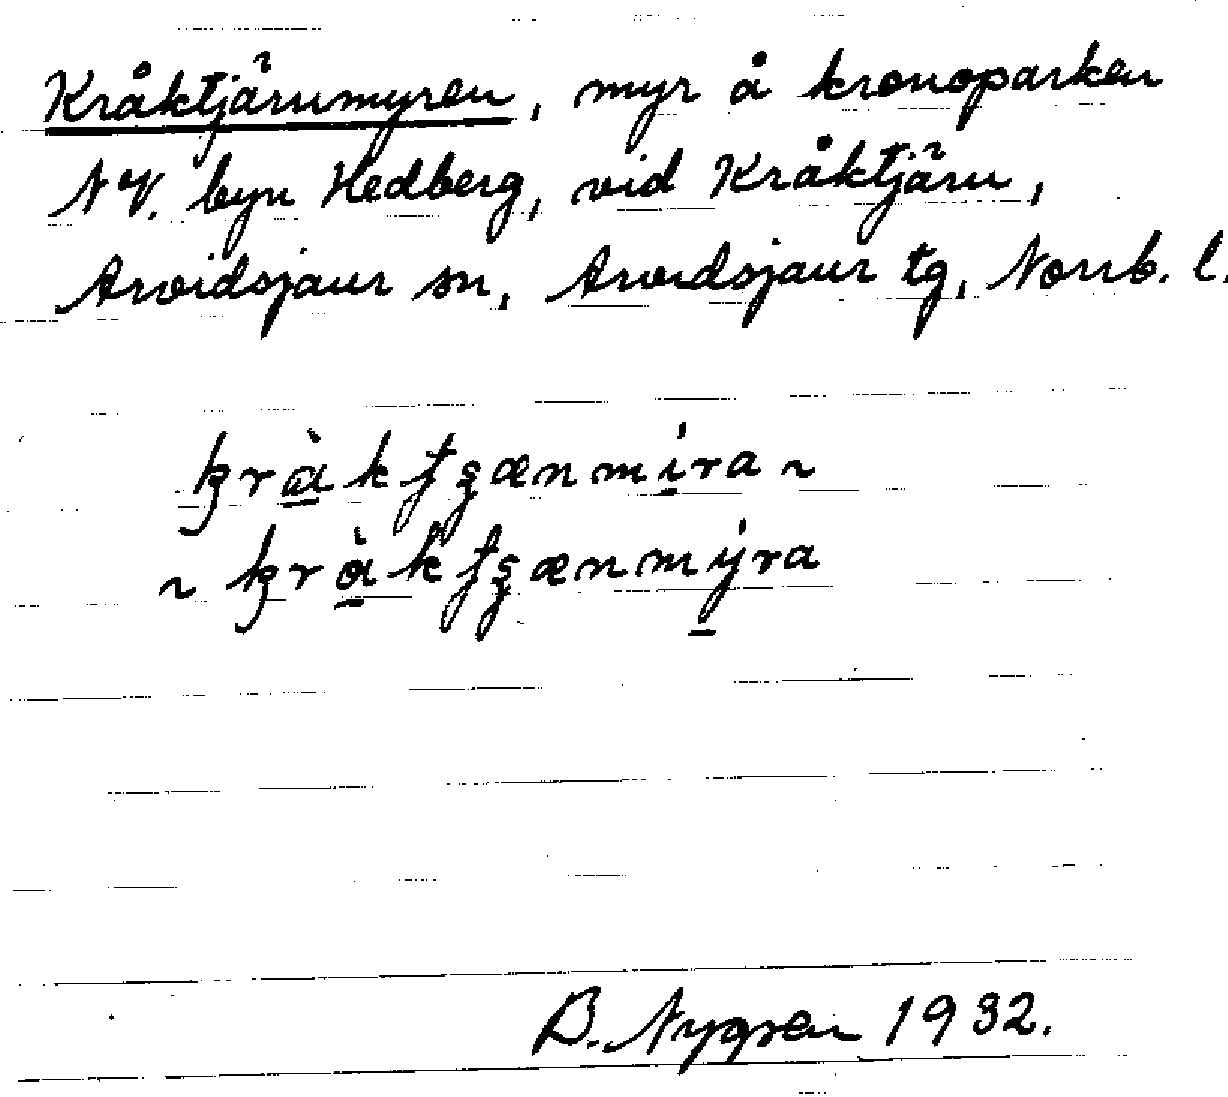 Kråktjärnmyren, myr å kronoparken
NV. byn Hedberg, vid Kråktjärn,
Arvidsjaur sn, Arvidsjaur tg, Norrb. l.
B. Nygren 1932.